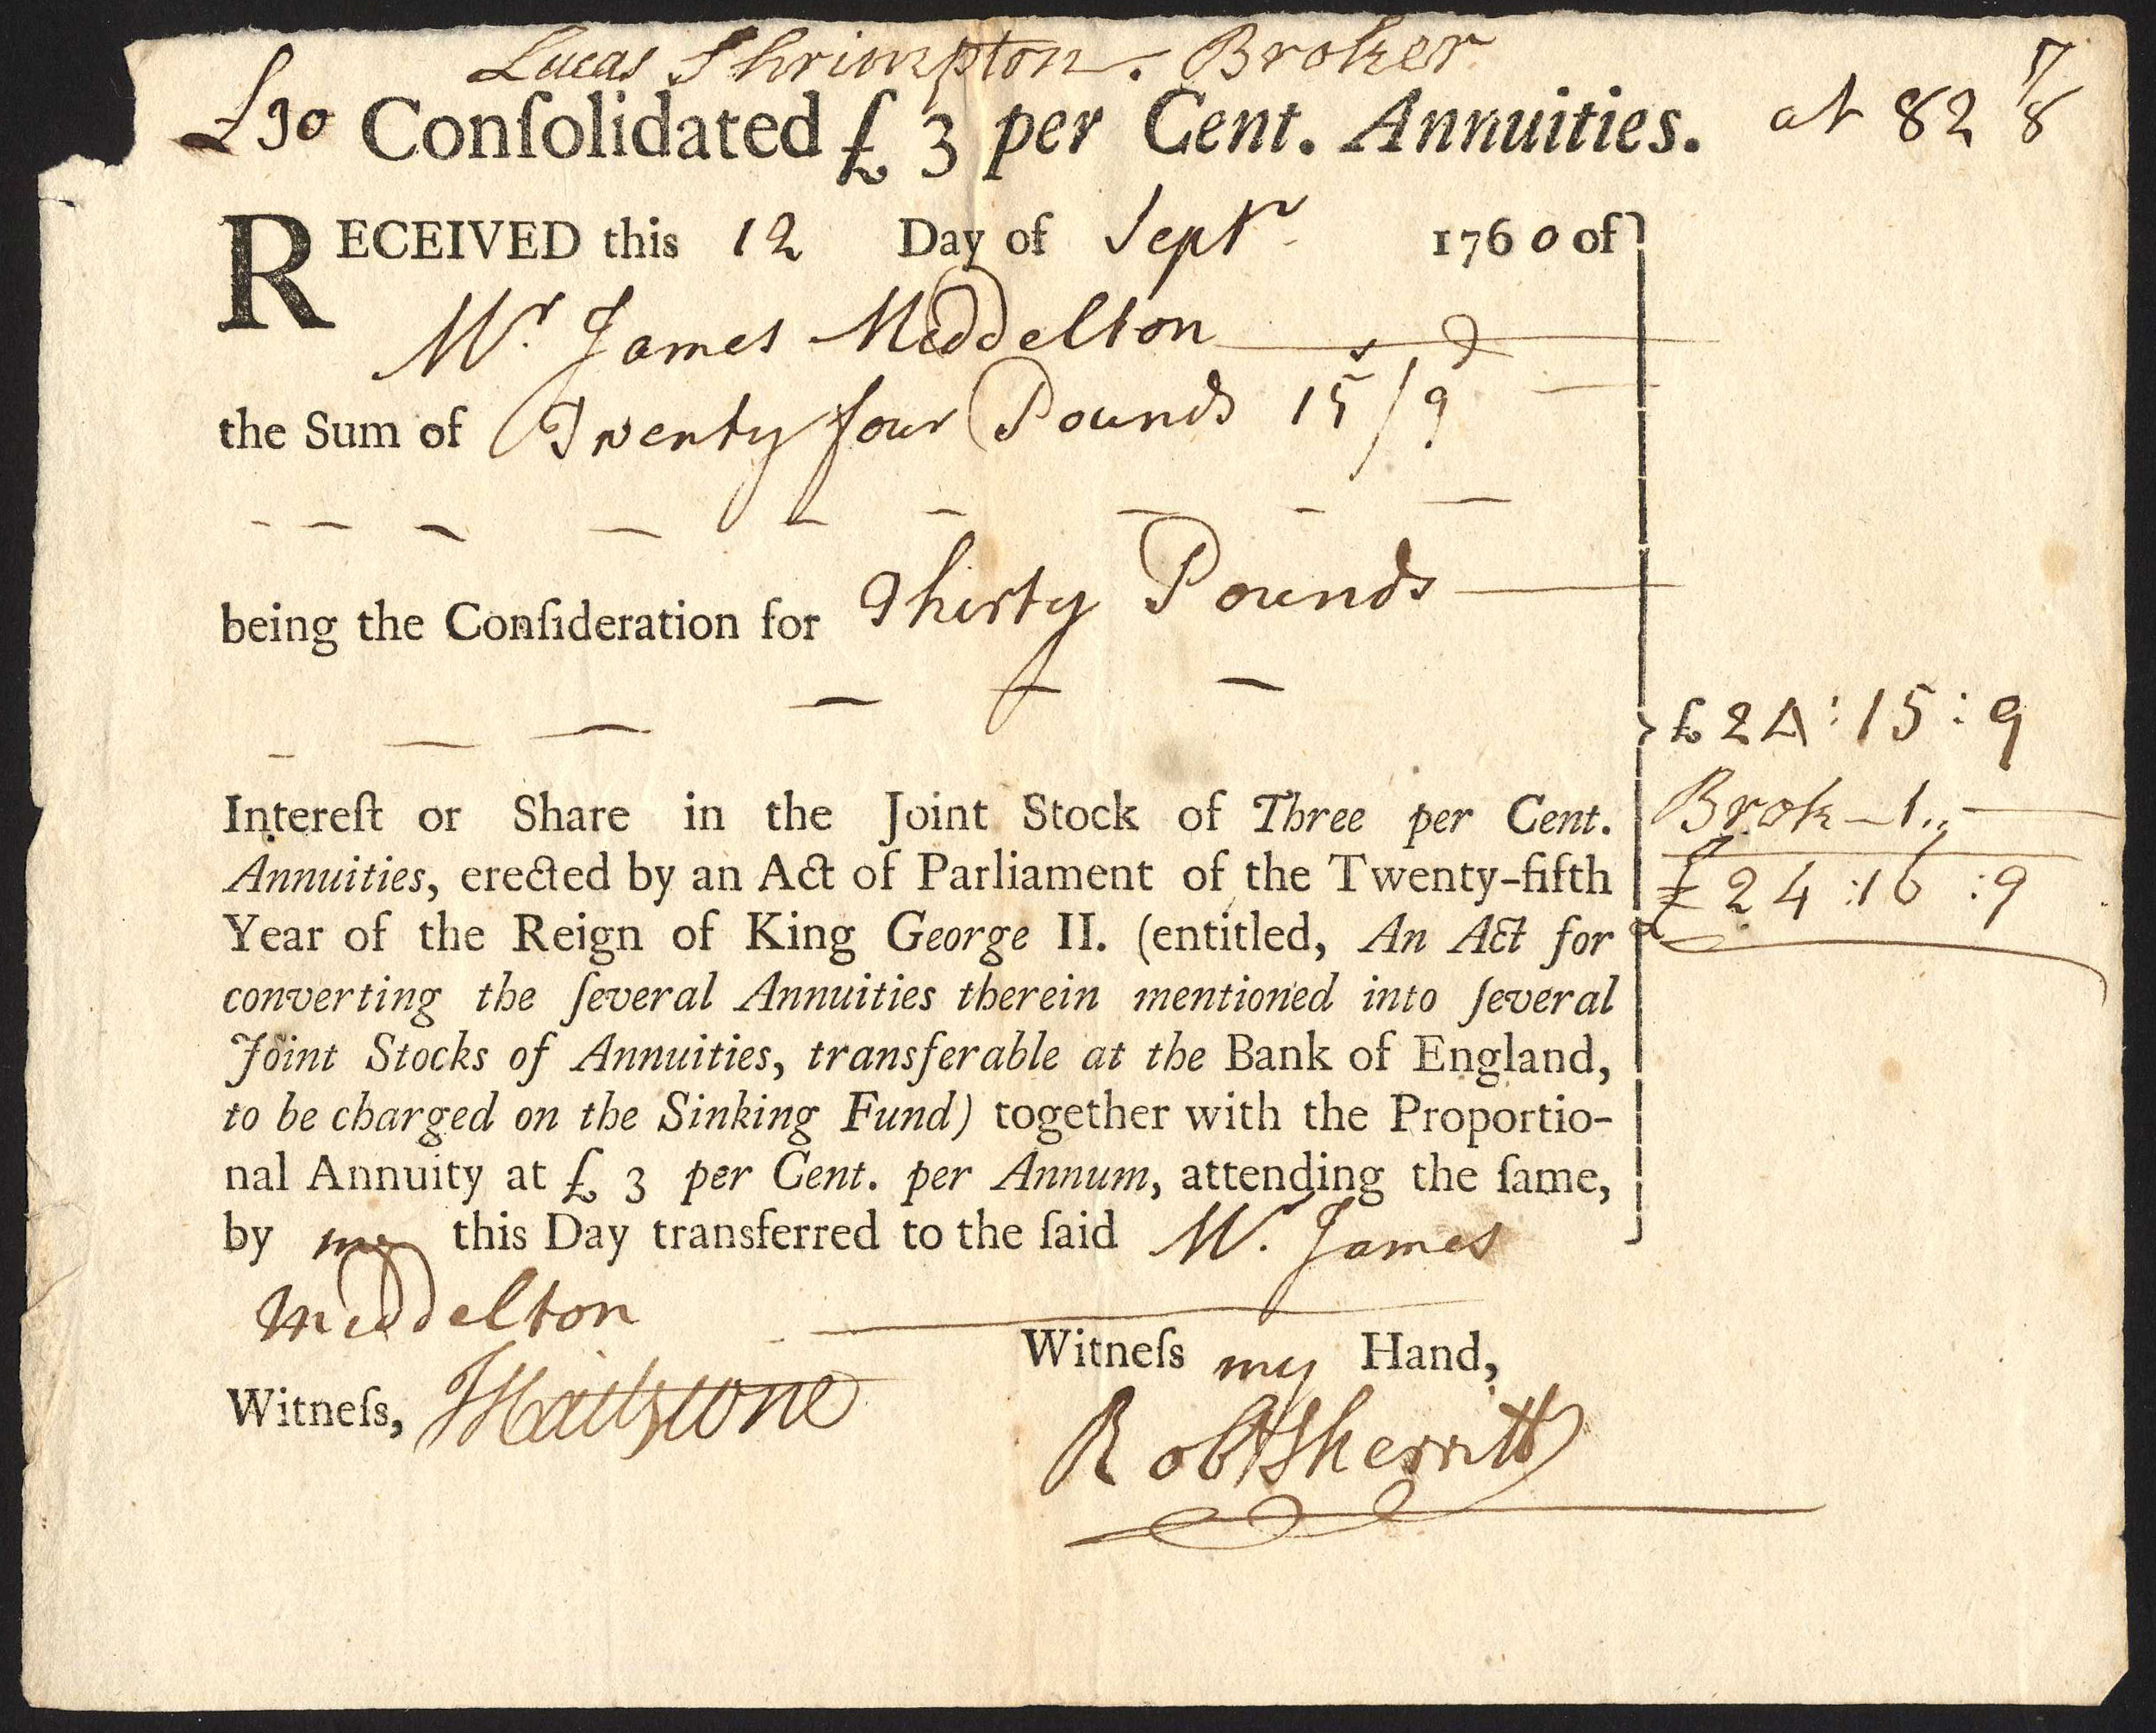 Lucas Shrimpton. Broker
£30 Conſolidated £ 3 per Cent. Annuities. at 82 7/8
RECEIVED this 12 Day of Septr 1760 of
Mr. James Middelton
the Sum of Twenty four Pounds 15s/9d
being the Conſideration for Thirty Pounds
£24:15:9
Intereſt or Share in the Joint Stock of Three per Cent.
Brok – 1 „ —
Annuities, erected by an Act of Parliament of the Twenty-fifth
£24:16:9
Year of the Reign of King George II. (entitled, An Act for
converting the ſeveral Annuities therein mentioned into ſeveral
Joint Stocks of Annuities, transferable at the Bank of England,
to be charged on the Sinking Fund) together with the Proportio-
nal Annuity at £ 3 per Cent. per Annum, attending the ſame,
by me this Day transferred to the ſaid Mr. James
Middelton
Witneſs my Hand,
Witneſs,
Robt Sherritt